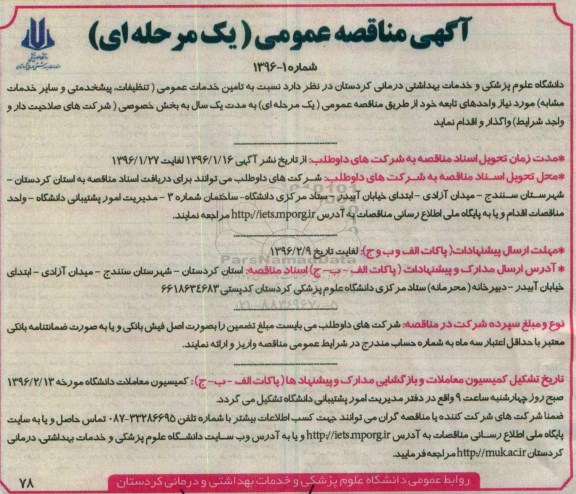 آگهی مناقصه عمومی ( یک مرحله ای)
شماره ۱-۱۳۹۶
دانشگاه علوم پزشکی و خدمات بهداشتی درمانی کردستان در نظر دارد نسبت به تامین خدمات عمومی ( تنظیفات، پیشخدمتی و سایر خدمات
مشابه) مورد نیاز واحدهای تابعه خود از طریق مناقصه عمومی ( یک مرحله ای) به مدت یک سال به بخش خصوصی ( شرکت های صلاحیت دار و
واجد شرایط) واگذار و اقدام نماید
*مدت زمان تحویل اسناد مناقصه به شرکت های داوطلب: از تاریخ نشر آگهی ۱۳۹۶/۱/۱۶ لغایت ۱۳۹۶/۱/۲۷
*محل تحویل اسناد مناقصه به شرکت های داوطلب: شرکت های داوطلب می توانند برای دریافت اسناد مناقصه به استان کردستان -
شهرستان سنندج - میدان آزادی - ابتدای خیابان آبیدر - ستاد مرکزی دانشگاه- ساختمان شماره ۳ - مدیریت امور پشتیبانی دانشگاه - واحد
مناقصات اقدام و یا به پایگاه ملی اطلاع رسانی مناقصات به آدرس http//iets.mporg.ir مراجعه نمایند.
*مهلت ارسال پیشنهادات( پاکات الف و ب و ج): لغایت تاریخ ۱۳۹۶/۲/۹
* آدرس ارسال مدارک و پیشنهادات ( پاکات الف - ب- ج) اسناد مناقصه: استان کردستان - شهرستان سنندج - میدان آزادی - ابتدای
خیابان آبیدر - دبیرخانه ( محرمانه) ستاد مرکزی دانشگاه علوم پزشکی کردستان کدپستی ۶۶۱۸۶۳۴۶۸۳
نوع و مبلغ سپرده شرکت در مناقصه: شرکت های داوطلب می بایست مبلغ تضمین را بصورت اصل فیش بانکی و یا به صورت ضمانتنامه بانکی
معتبر با حداقل اعتبار سه ماه به شماره حساب مندرج در شرایط عمومی مناقصه واریز و ارائه نمایند.
تاریخ تشکیل کمیسیون معاملات و بازگشایی مدارک و پیشنهاد ها ( پاکات الف - ب - ج): کمیسیون معاملات دانشگاه مورخه ۱۳۹۶/۲/۱۳
صبح روز چهارشنبه ساعت ۹ واقع در دفتر مدیریت امور پشتیبانی دانشگاه تشکیل می گردد.
ضمنا شرکت های شرکت کننده یا مناقصه گران می توانند جهت کسب اطلاعات بیشتر با شماره تلفن ۳۳۲۸۶۶۹۵-۰۸۷ تماس حاصل و یا به سایت
پایگاه ملی اطلاع رسانی مناقصات به آدرس http//iets.mporg.ir و یا به آدرس وب سایت دانشگاه علوم پزشکی و خدمات بهداشتی، درمانی
کردستان http//muk.ac.ir مراجعه فرمایید.
روابط عمومی دانشگاه علوم پزشکی و خدمات بهداشتی و درمانی کردستان
۷۸